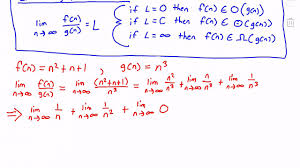 lim n→∞ f(n)/g(n) = L { if L=0 then f(n) ∈ O(g(n))
if L=C then f(n) ∈ Θ(g(n))
if L=∞ then f(n) ∈ Ω(g(n))
f(n) = n²+n+1 , g(n) = n³
lim n→∞ f(n)/g(n) = lim n→∞ (n²+n+1)/n³ = lim n→∞ n²/n³ + lim n→∞ n/n³ + lim n→∞ 1/n³
⇒ lim n→∞ 1/n + lim n→∞ 1/n² + lim n→∞ 0